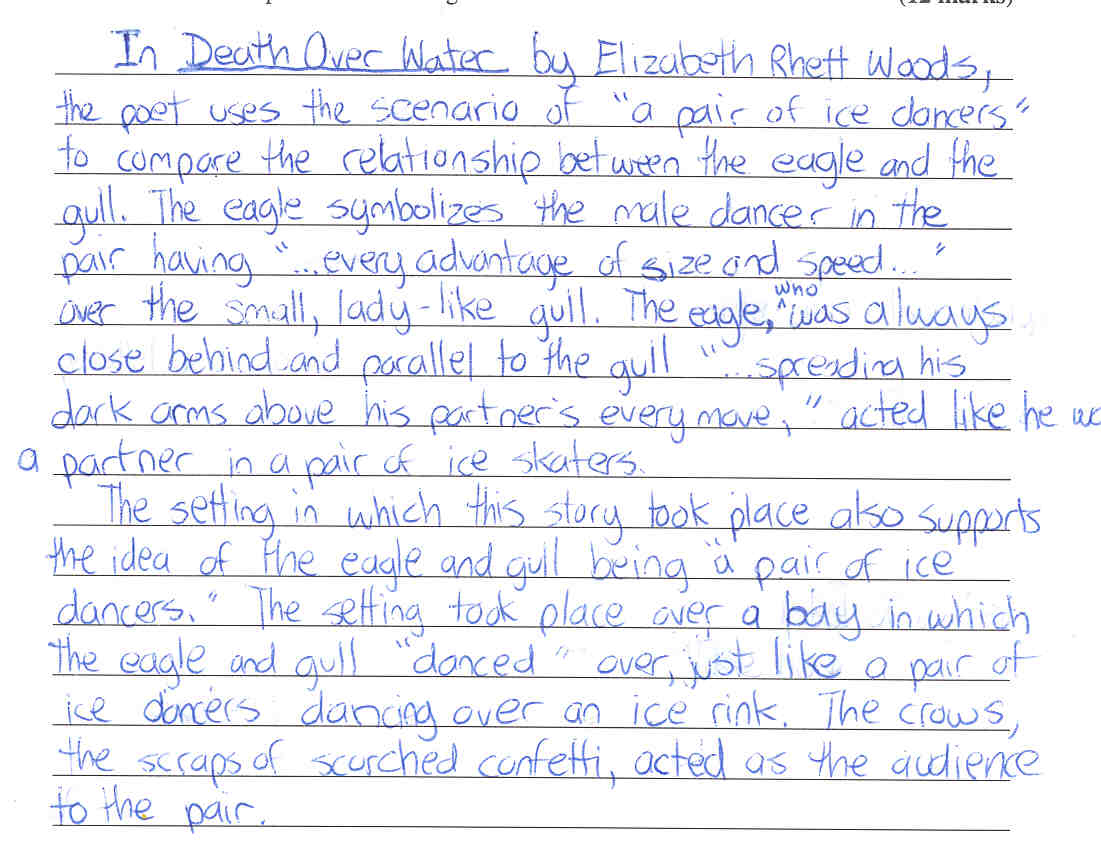 (12 marks)
In Death Over Water by Elizabeth Rhett Woods,
the poet uses the scenario of "a pair of ice dancers"
to compare the relationship between the eagle and the
gull. The eagle symbolizes the male dancer in the
pair having "...every advantage of size and speed..."
over the small, lady-like gull. The eagle, ^who was always
close behind and parallel to the gull "...spreading his
dark arms above his partner's every move," acted like he
a partner in a pair of ice skaters.
The setting in which this story took place also supports
the idea of the eagle and gull being "a pair of ice
dancers." The setting took place over a bay in which
the eagle and gull "danced" over, just like a pair of
ice dancers dancing over an ice rink. The crows,
the scraps of scorched confetti, acted as the audience
to the pair.